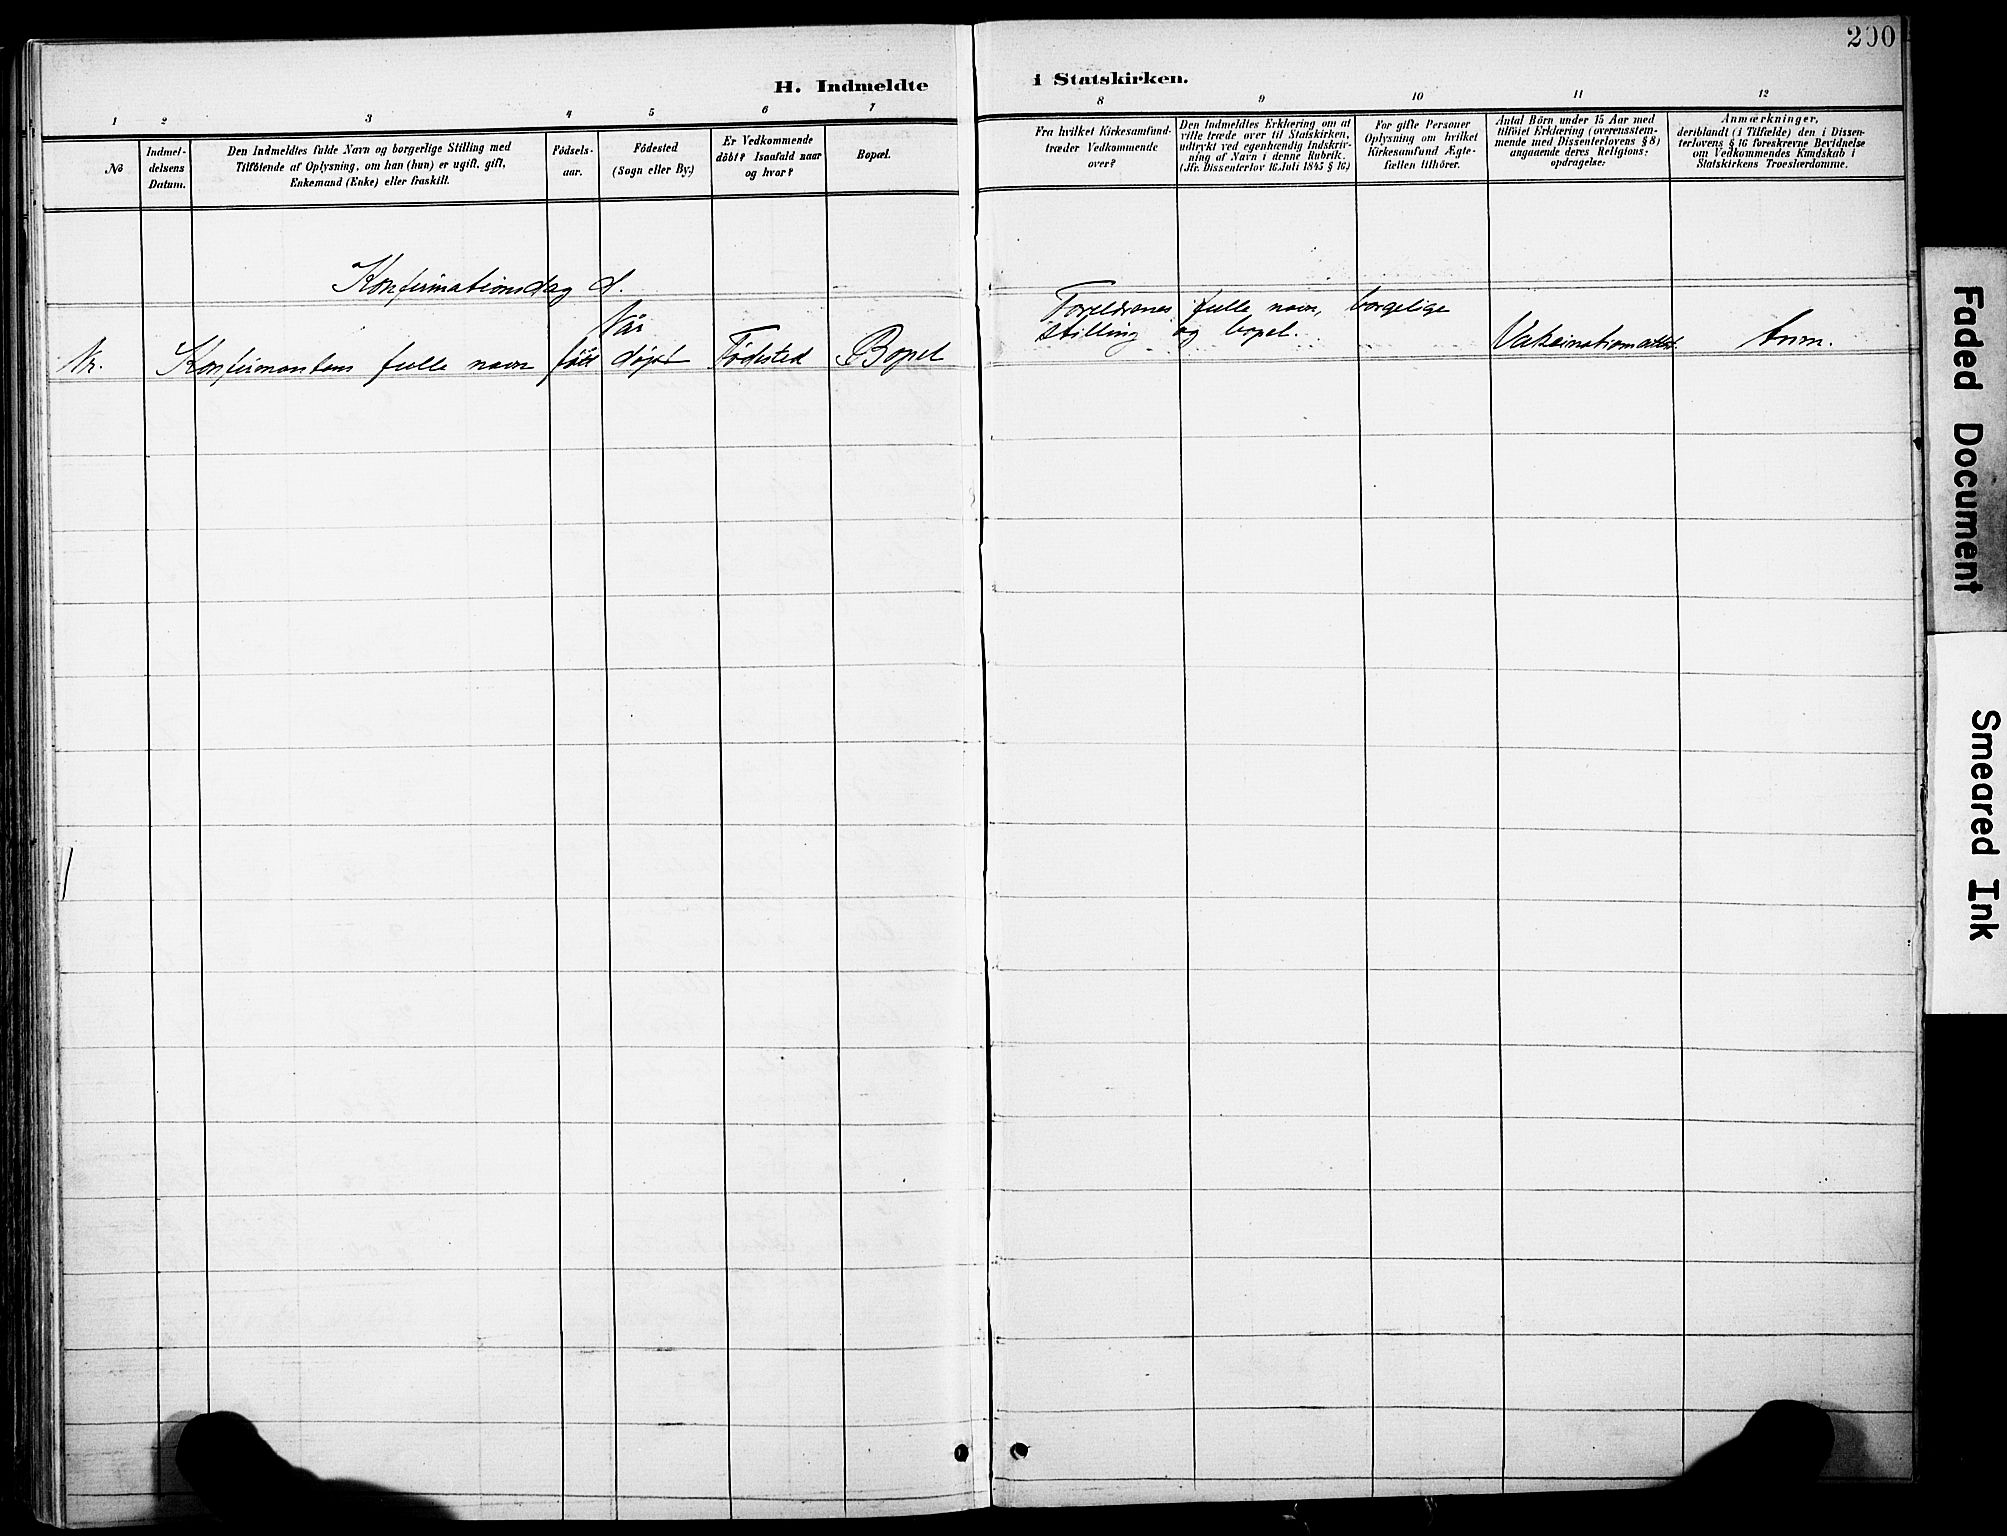 200
H. Indmeldte i Statskirken.
1 2 3 4 5 6 7 8 9 10 11 12
No
Indmel-
delsens
Datum.
Den Indmeldtes fulde Navn og borgerlige Stilling med
Tilföiende af Oplysning, om han (hun) er ugift, gift,
Enkemand (Enke) eller fraskilt.
Födsels-
aar.
Födested
(Sogn eller By.)
Er Vedkommende
döbt? Isaafald naar
og hvor?
Bopæl.
Fra hvilket Kirkesamfund
træder Vedkommende
over?
Den Indmeldtes Erklæring om at
ville træde over til Statskirken,
udtrykt ved egenhændig Indskriv-
ning af Navn i denne Rubrik.
(Jfr. Dissenterlov 16 Juli 1845 § 16)
For gifte Personer
Oplysning om hvilket
Kirkesamfund Ægte-
fællen tilhörer.
Antal Börn under 15 Aar med
tilföiet Erklæring (overensstem-
mende med Dissenterlovens § 8)
angaaende deres Religions-
opdragelse.
Anmærkninger,
deriblandt (i Tilfælde) den i Dissen-
terlovens § 16 foreskrevne Bevidnelse
om Vedkommendes Kundskab i
Statskirkens Troeslærdomme.
Konfirmationsdag d.
Når
Nr. Konfirmantens fulle navn født døpt Fødested Bopel
Foreldrenes fulle navn, borgelige
stilling og bopel.
Vaksinationsattest Anm.
Faded Document
Smeared Ink